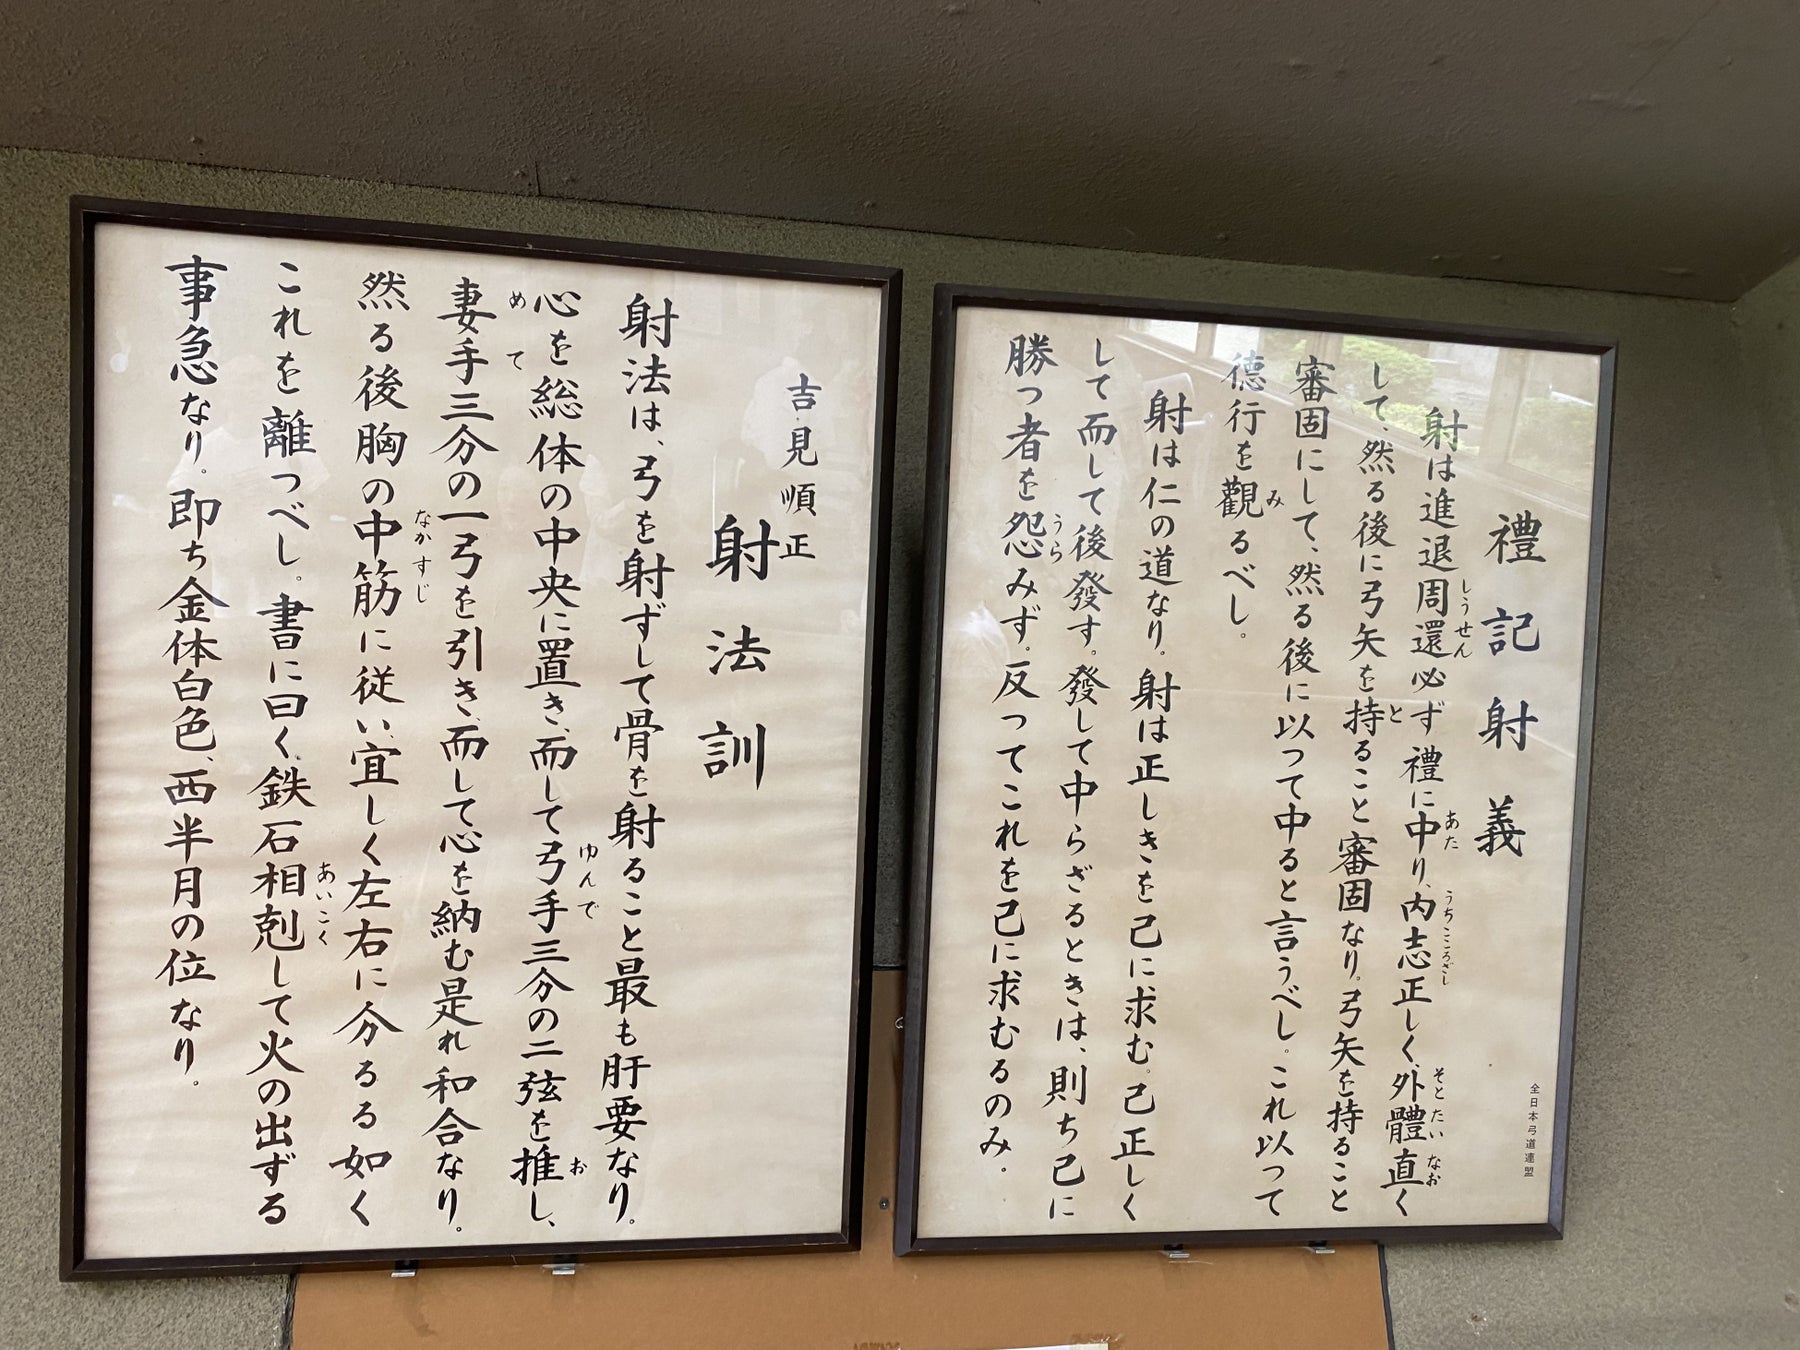 禮記射義
全日本弓道連盟
射は進退周還必ず禮に中り、内志正しく、外體直く
しうせん
あた
うちこころざし
そとたいなお
して、然る後に弓矢を持ること審固なり。弓矢を持ること
と
審固にして、然る後に以つて中ると言うべし。これ以つて
德行を觀るべし。
み
射は仁の道なり。射は正しきを己に求む。己正しく
して而して後發す。發して中らざるときは、則ち己に
勝つ者を怨みず。反ってこれを己に求むるのみ。
うら
吉見順正
射法訓
射法は、弓を射ずして骨を射ること最も肝要なり。
心を総体の中央に置き、而して弓手三分の二弦を推し、
ゆんで
お
妻手三分の一弓を引き、而して心を納む是れ和合なり。
めて
然る後胸の中筋に従い、宜しく左右に分るる如く
なかすじ
これを離つべし。書に曰く、鉄石相剋して火の出ずる
あいこく
事急なり。即ち金体白色、西半月の位なり。